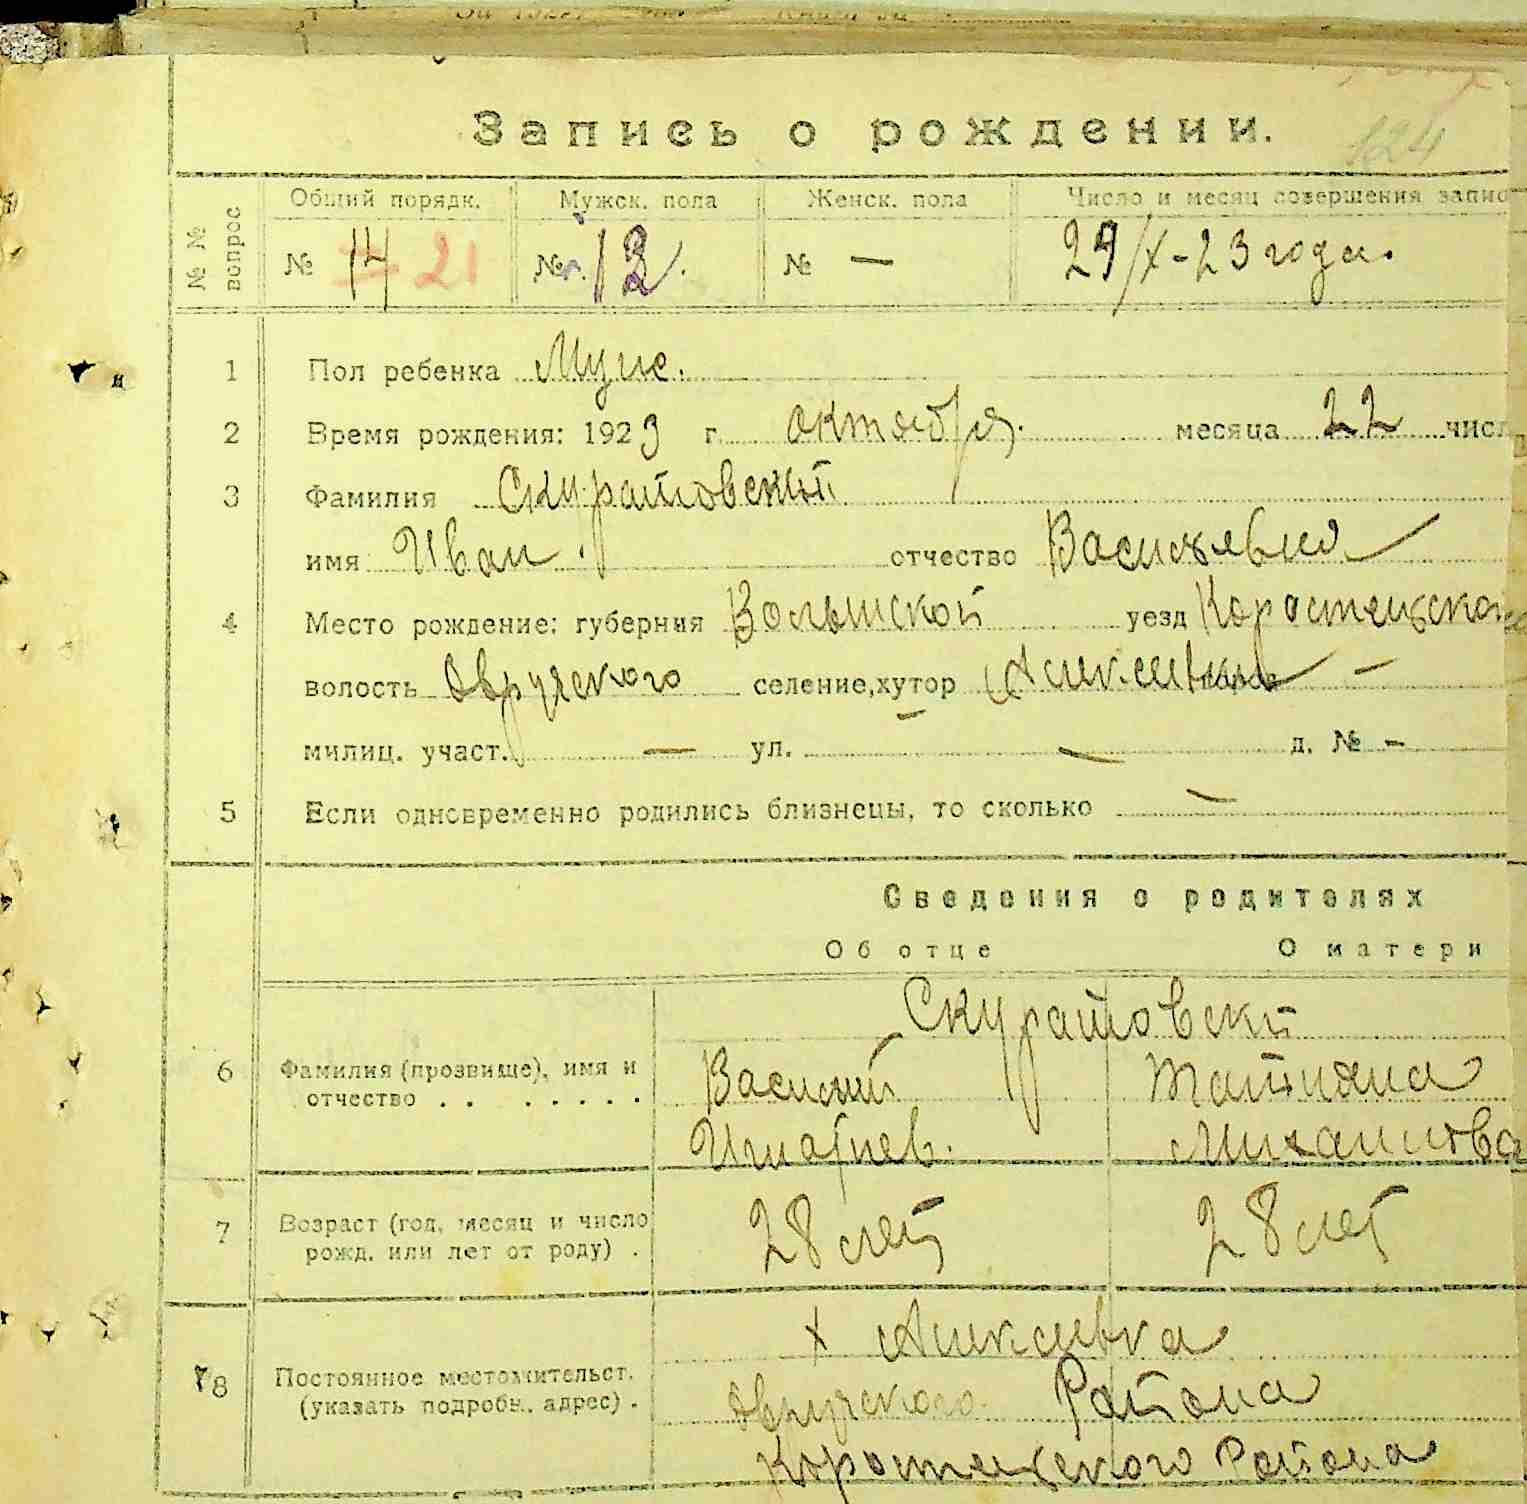 Запись о рождении.
124
№№ вопрос
Общий порядк. Мужск. пола Женск. пола Число и месяц совершения запис
№ 14 21 № 13. № — 29/X-23 года.
1 Пол ребенка Муже.
2 Время рождения: 1923 г. октября. месяца 22 числ
3 Фамилия Скуратовский
имя Иван. отчество
4 Место рождение: губерния Волынской уезд
волость Овручского селение,хутор Алексеевка —
милиц. участ. — ул. — д. № —
5 Если одновременно родились близнецы, то сколько —
Сведения о родителях
Об отце О матери
Скуратовски
6 Фамилия (прозвище), имя и отчество . . . . . . .
Василий Татияна
Игнатиев. Михаилова
7 Возраст (год, месяц и число рожд. или лет от роду) .
28 лет 28 лет
8 Постоянное местожительст. (указать подробн. адрес) .
х Аликсиевка
Овручского Района
Коростенского Района